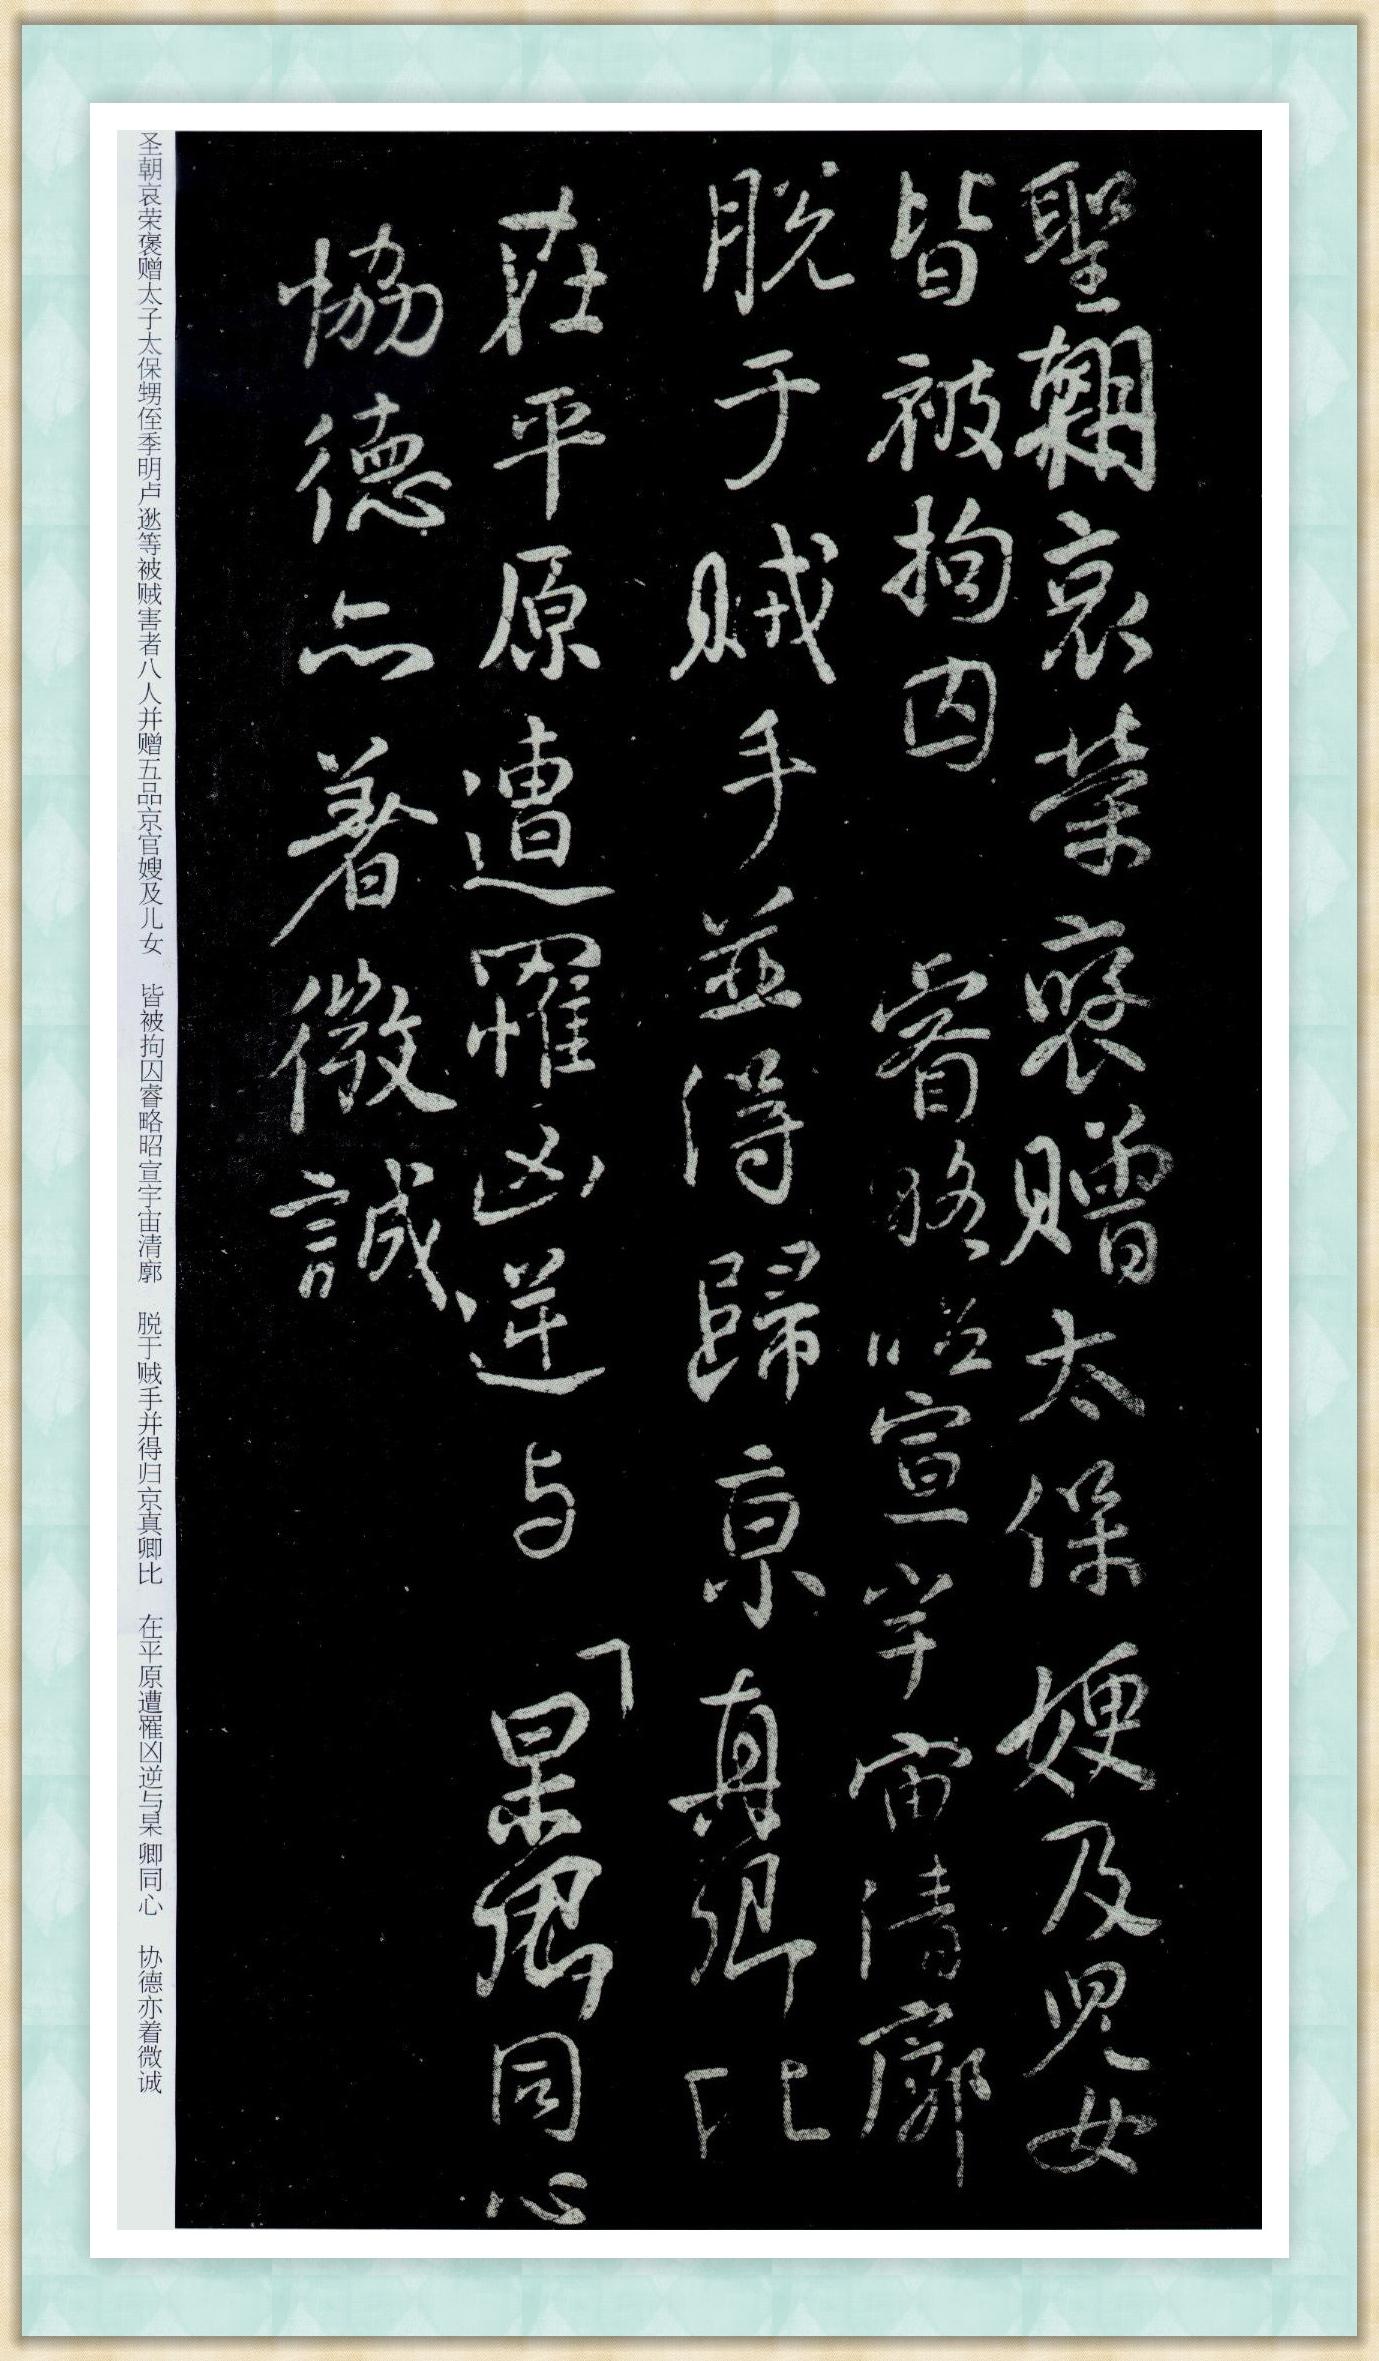 聖朝哀榮襃贈太保嫂及児女
皆被拘囚睿略昭宣宇宙清廓
脱于賊手並得歸京真卿比
在平原遭罹凶逆与杲卿同心
協德亦著微誠
圣朝哀荣褒赠太子太保甥侄季明卢逖等被贼害者八人并赠五品京官嫂及儿女 皆被拘囚睿略昭宣宇宙清廓 脱于贼手并得归京真卿比 在平原遭罹凶逆与杲卿同心 协德亦着微诚